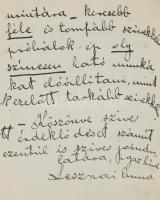 mintára – keresebb
féle és tompább szinekkel
próbálok ép oly
szinesen ható munká
kat előállitani, mint
kezelőtt tarkább szinekk
tt – Köszönve szives
érdeklődését számit
ezentúl is szives jóindu
latára, igaz híve
Lesznai Anna